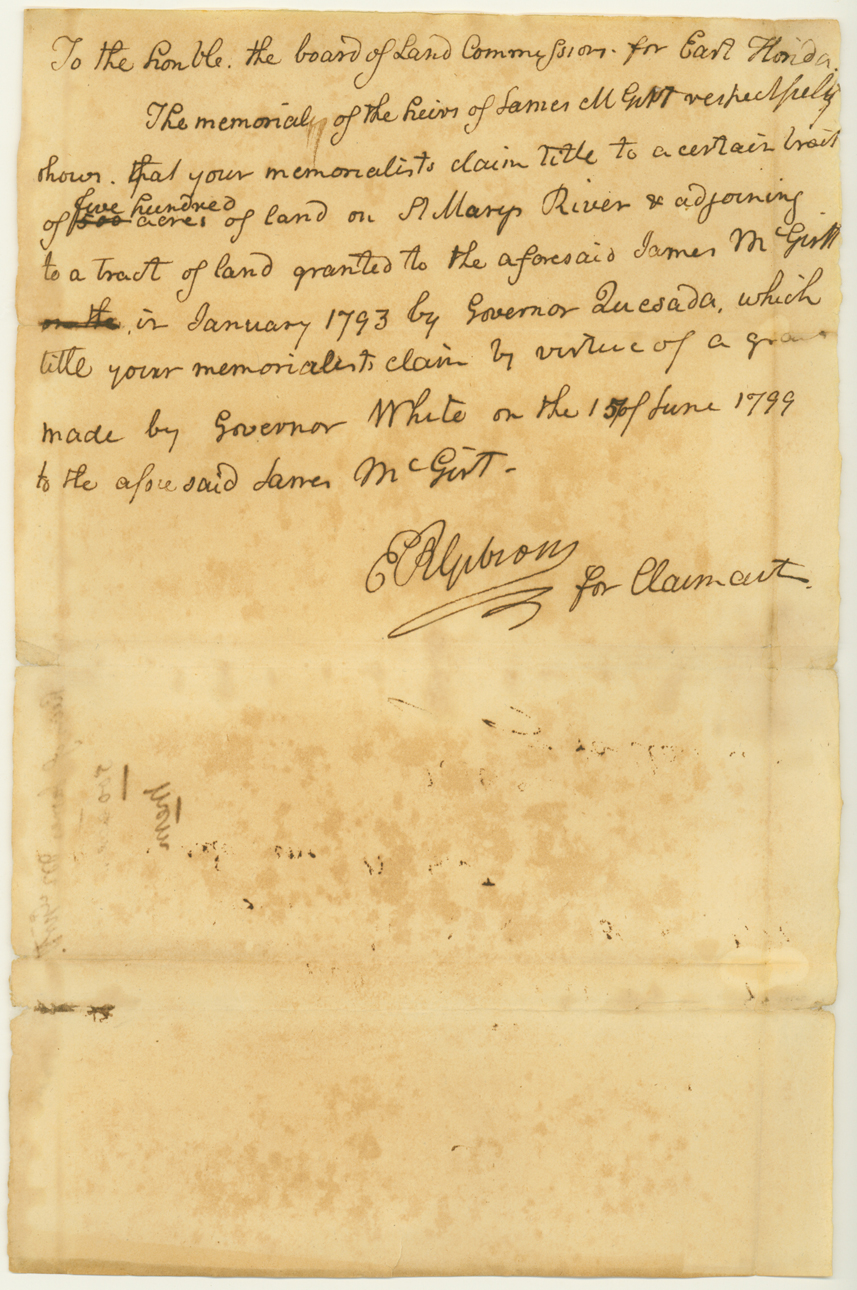 To the honble. the board of Land Commissiors. for East Florida.
The memorial of the heirs of James McGirtt respectfully
shows. that your memorialists claim title to a certain tract
five hundred
of acres of land on St Marys River & adjoining
to a tract of land granted to the aforesaid James McGirtt
on the, in January 1793 by Governor Quesada, which
title your memorialists claim by virtue of a gran
made by Governor White on the 15 of June 1799
to the afore said James McGirtt -
E R Gibson for Claimant.